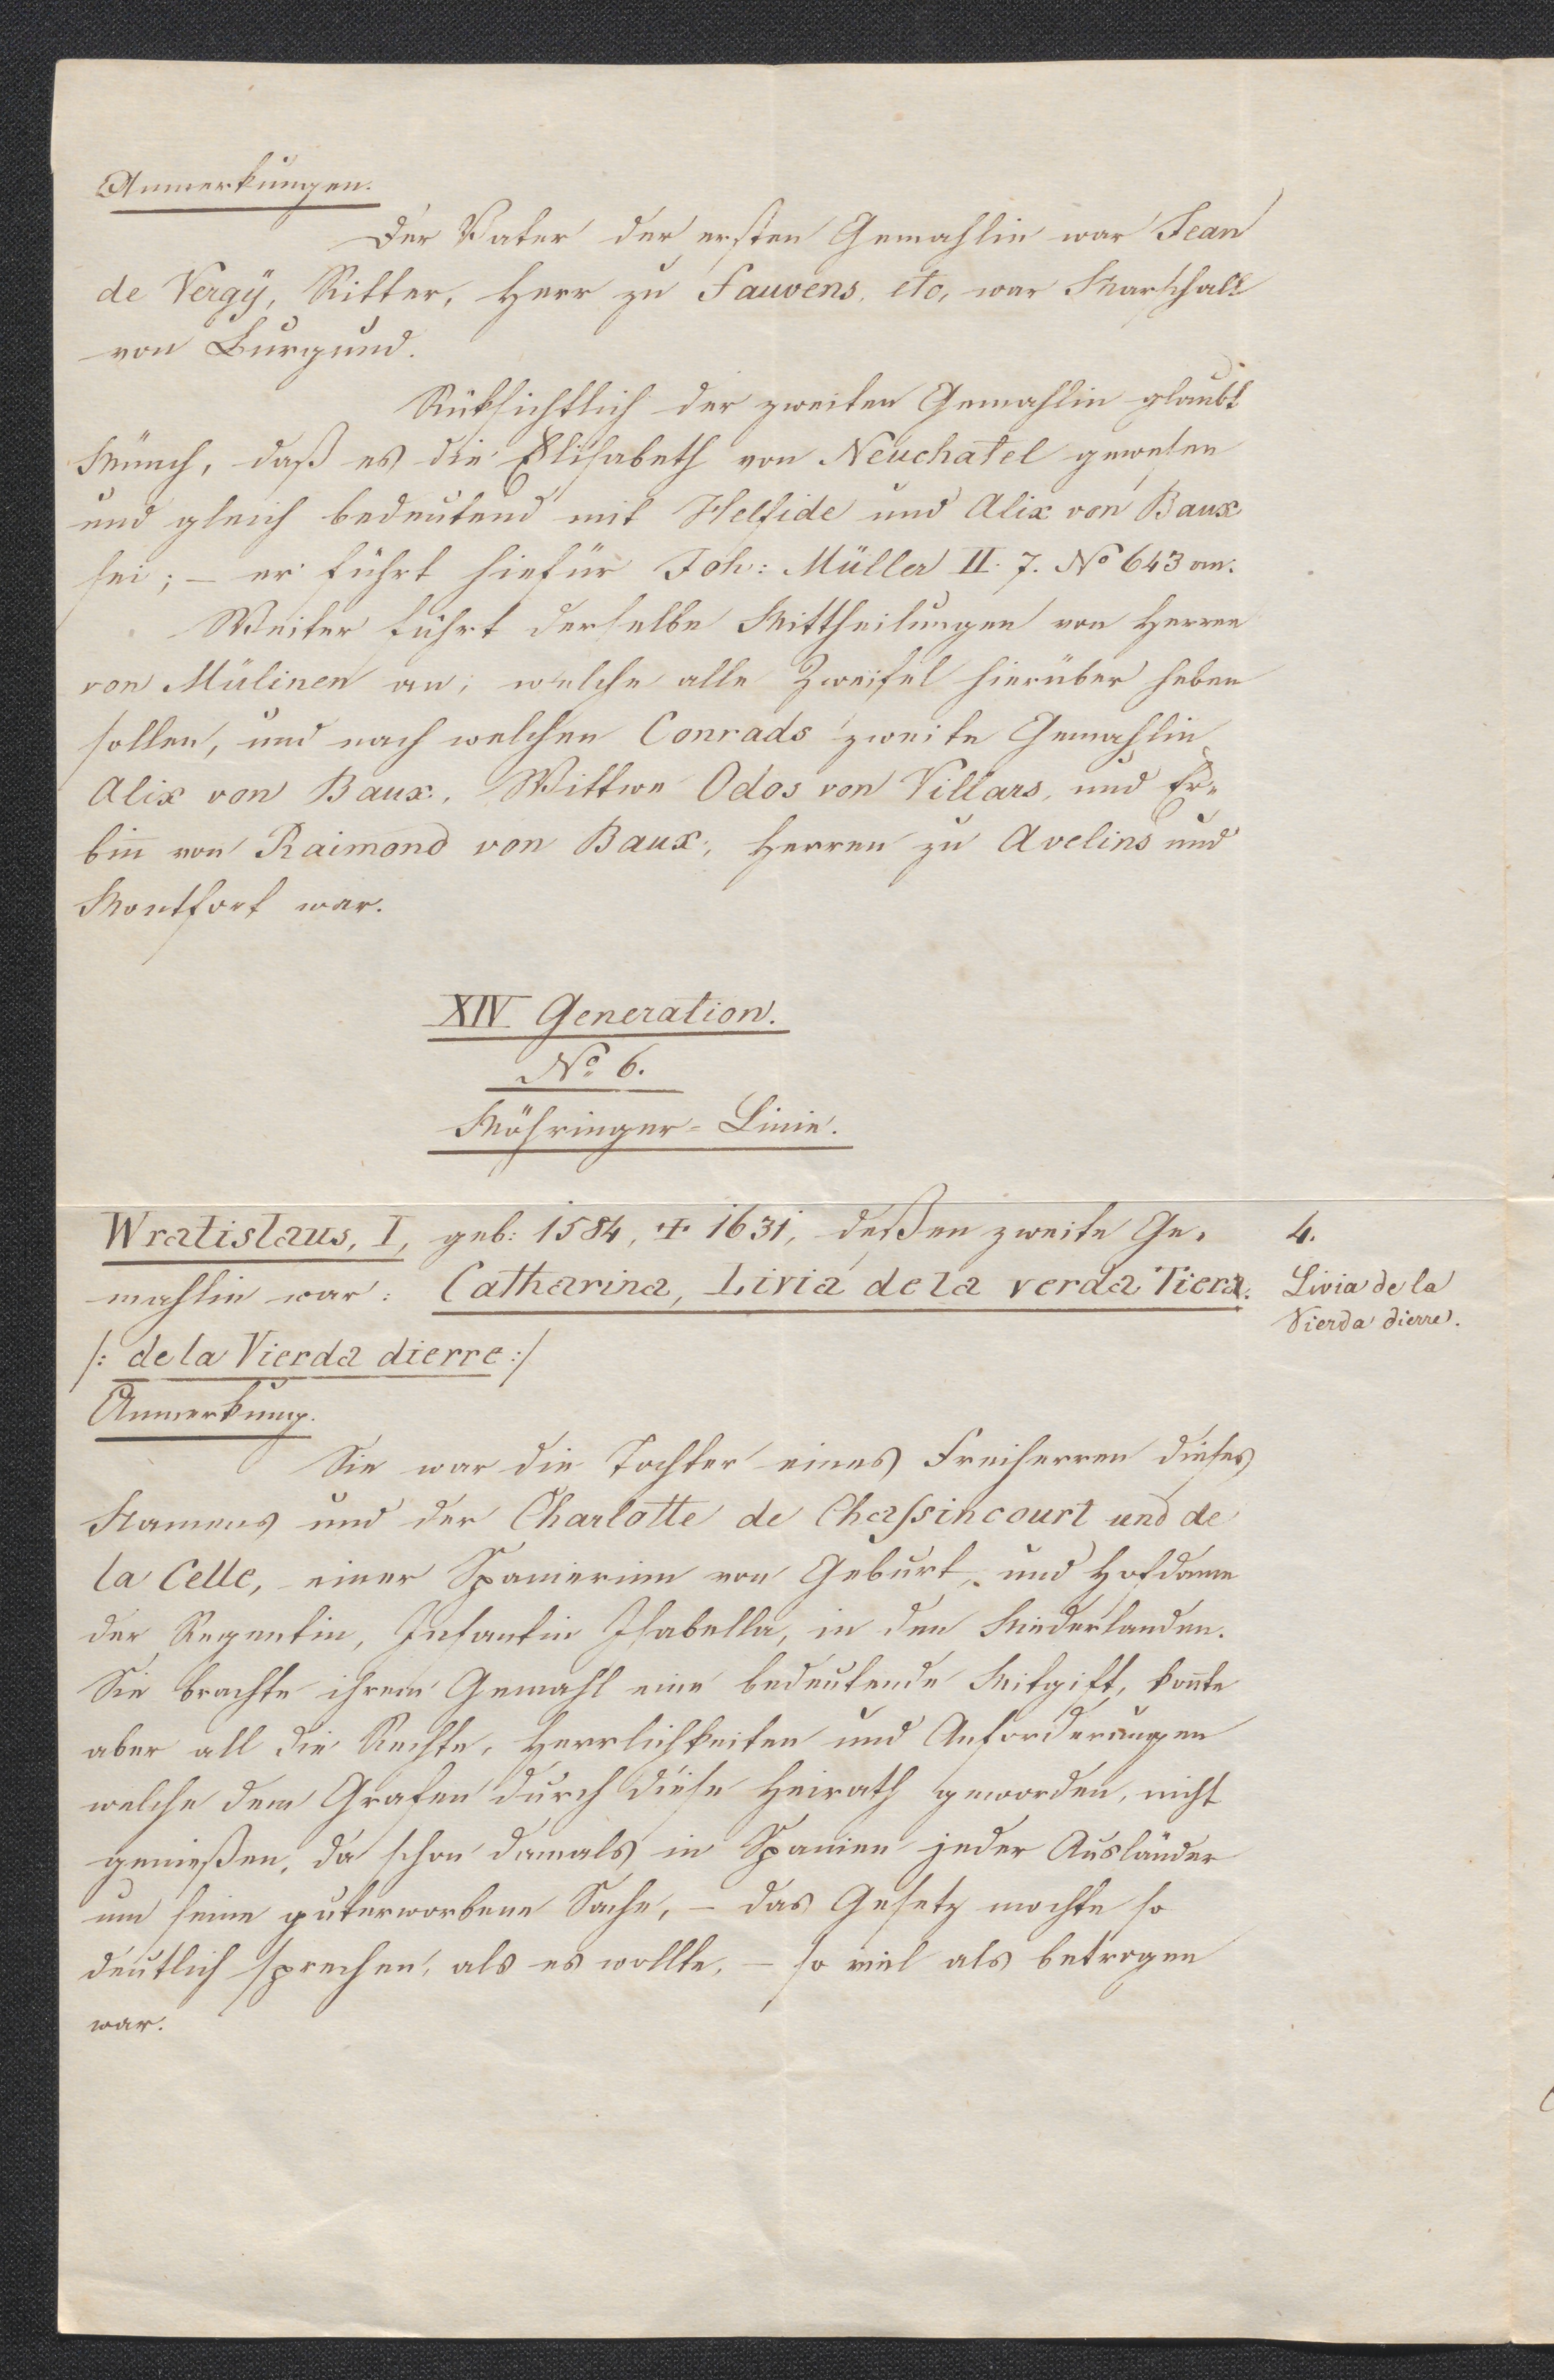 Anmerkungen.
Der Vater der ersten Gemahlin war Jean
de Vergÿ, Ritter, Herr zu Fauvens, etc, war Marschall
von Burgund.
Rüksichtlich der zweiten Gemahlin glaubt
Münch, daß es die Elisabeth von Neuchatel gewesen
und gleich bedeutend mit Helfide und Alix von Baux
sei; – er führt hiefür Joh: Müller II. 7. No 643 an.
Weiter führt derselbe Mittheilungen von Herren
von Mülinen an; welche alle Zweifel hierüber heben
sollen, und nach welchen Conrads zweite Gemahlin
Alix von Baux, Wittwe Odos von Villars, und Er-
bin̄ von Raimond von Baux, Herren zu Avelins und
Montfort war.
XIV Generation.
No 6.
Möhringer-Linie.
Wratislaus, I, geb: 1584, + 1631, deßen zweite Ge-
mahlin war: Catharina, Livia de la verda Tiera.
/: de la Vierda dierre :/
4.
Livia de la
Vierda dierre.
Anmerkung.
Sie war die Tochter eines Freiherren dieses
Namens und der Charlotte de Chassincourt und de
la Celle, einer Spanierinn von Geburt, und Hofdame
der Regentin, Infantin Isabella, in den Niederlanden.
Sie brachte ihrem Gemahl eine bedeutende Mitgift, kon̄te
aber all die Rechte, Herrlichkeiten und Anforderungen
welche dem Grafen durch diese Heirath geworden, nicht
genießen, da schon damals in Spanien jeder Ausländer
um seine guterworbene Sache, – das Gesetz mochte so
deutlich sprechen, als es wollte, – so viel als betrogen
war.